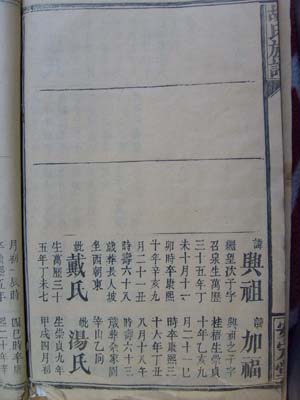 氏族譜
諱興祖
繼望次子字
召泉生萬歷
三十五年丁
未十月十一
卯時卒康熙
十年辛亥九
月二十一丑
時壽六十八
歲葬長人坡
坐西朝東
妣戴氏
生萬歷三十
五年丁未七
諱加福
興祖之子字
桂梧生崇貞
十年乙亥九
月二十一巳
時卒康熙三
十六年丁丑
八月十八午
時壽六十三
歲葬金家園
辛山乙向
妣湯氏
生崇貞九年
甲戌四月初